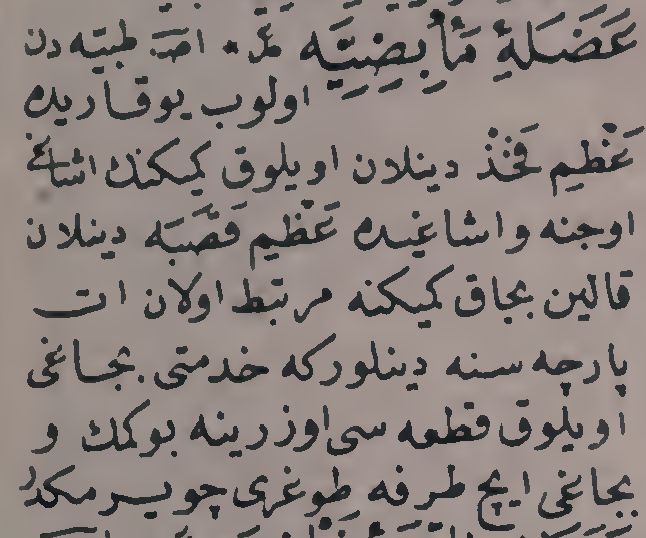 عَضَلَۀِ مَأْبِضِيَّه مر. اصـ. طبیه دن
اولوب یوقاریده
عَظْمِ فَخْذْ دینلان اویلوق کمیکنك اشاغی
اوجنه واشاغیده عَظْمِ قَصَبَه دینلان
قالین بجاق کمیکنه مرتبط اولان ات
پارچه سنه دینلورکه خدمتی بجاغی
اویلوق قطعه سی اوزرینه بوکمك و
بجاغی ایچ طرفه طوغری چویرمکدر